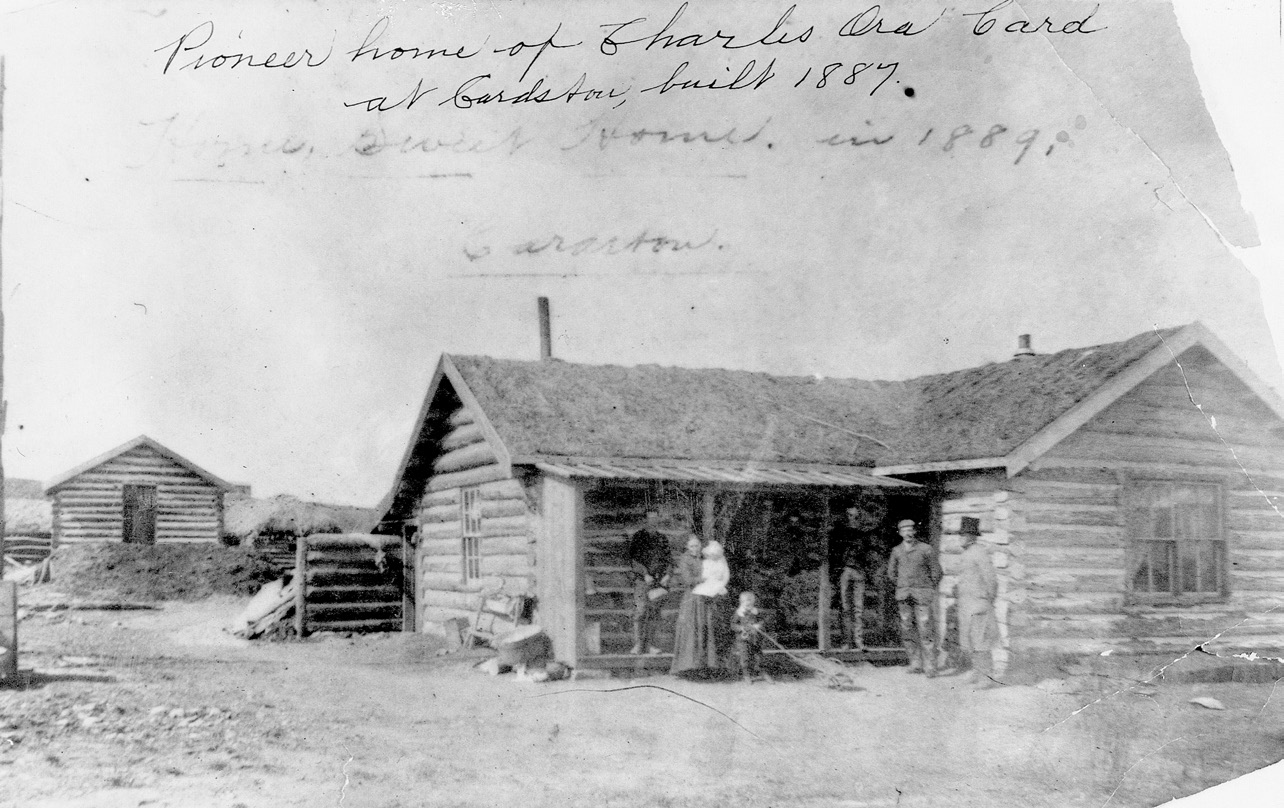 Pioneer home of Charles Ora Card
at Cardston, built 1887.
Home, Sweet Home. in 1889,
Cardston.